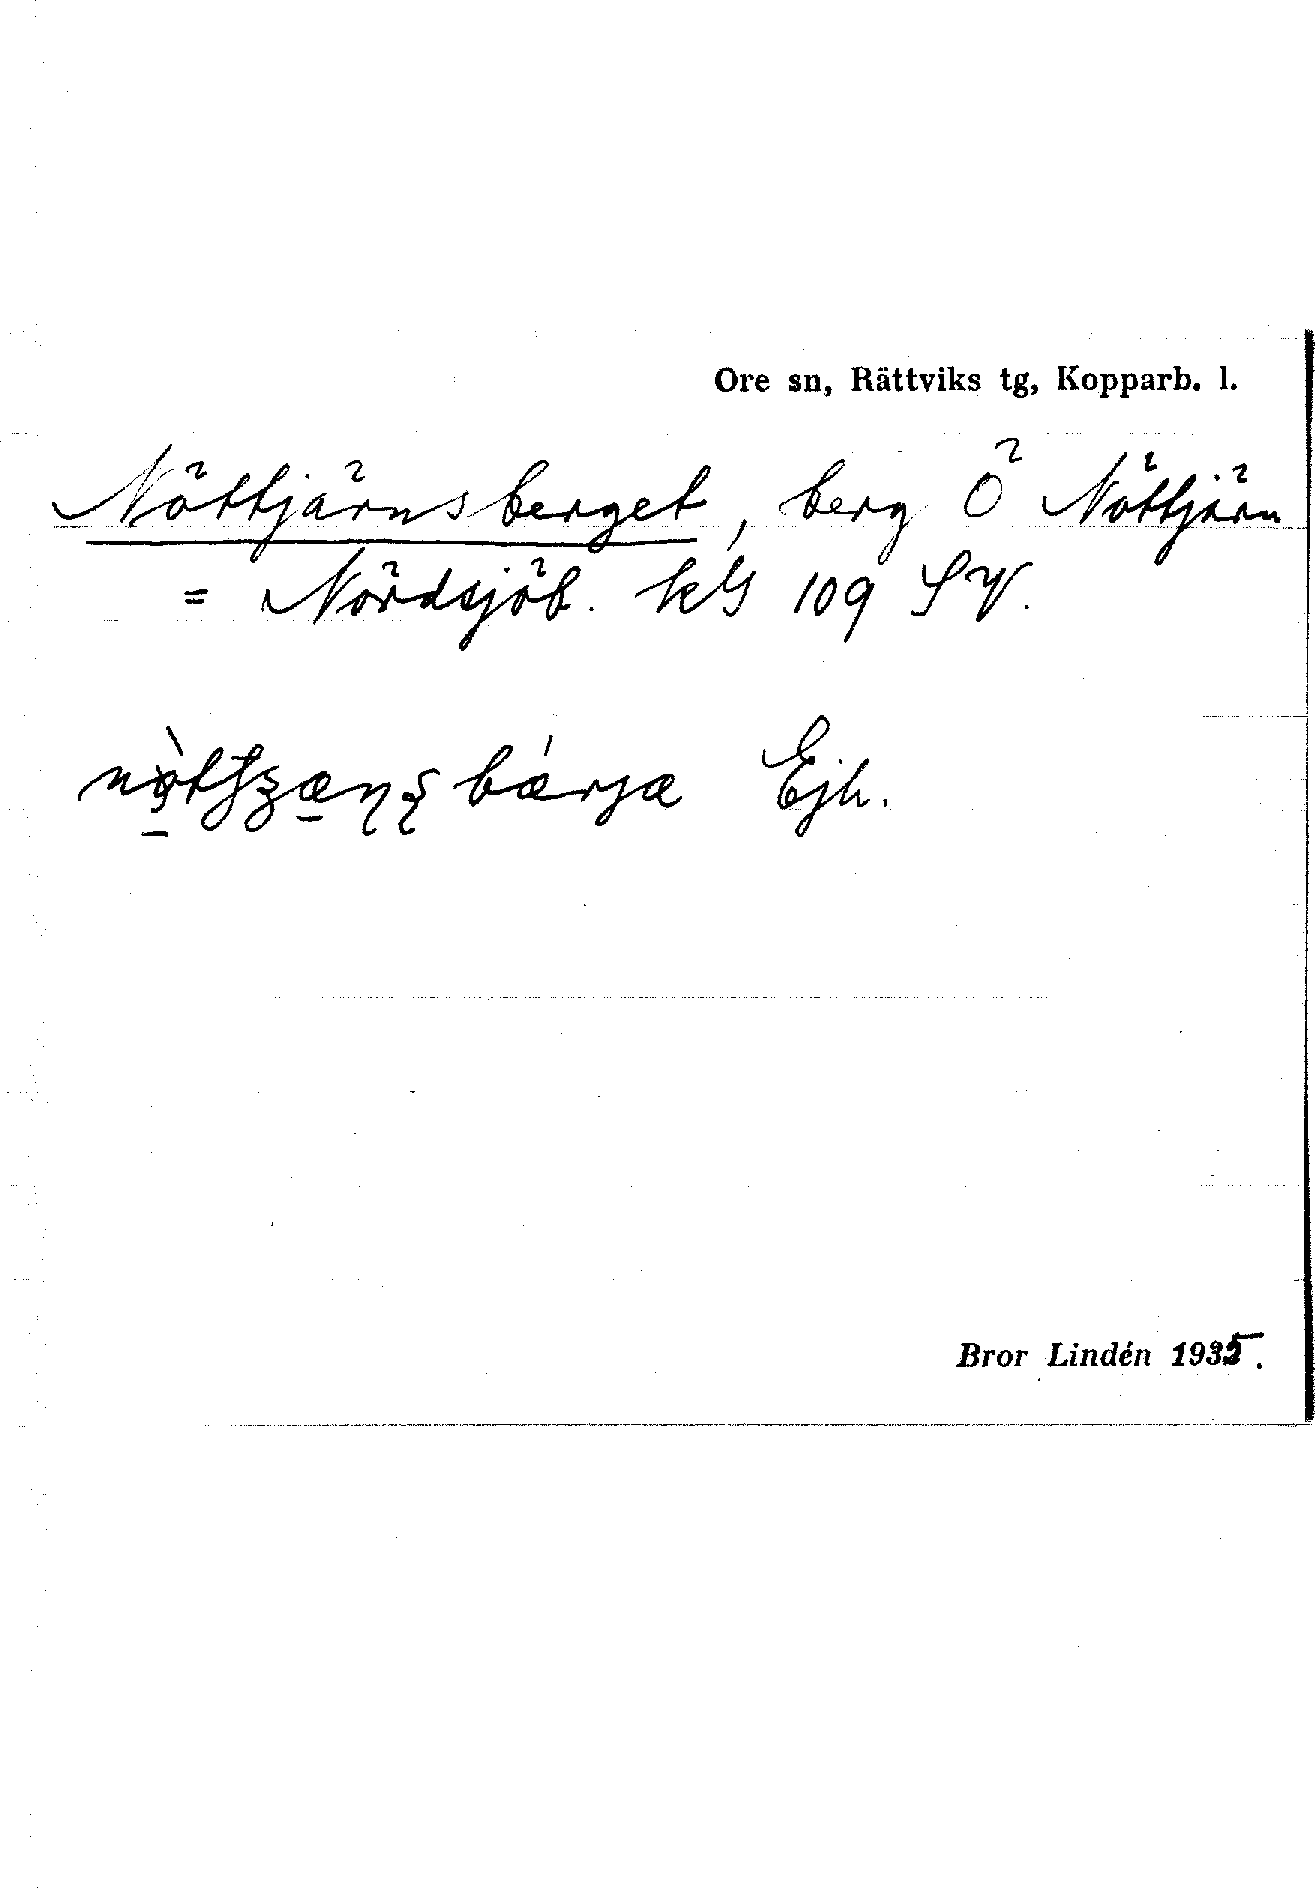 Ore sn, Rättviks tg, Kopparb. l.
Nöttjärnsberget, berg Ö Nöttjärn
= Nördsjöb. kbl 109 SV.
bærja Ejh.
Bror Lindén 1935.